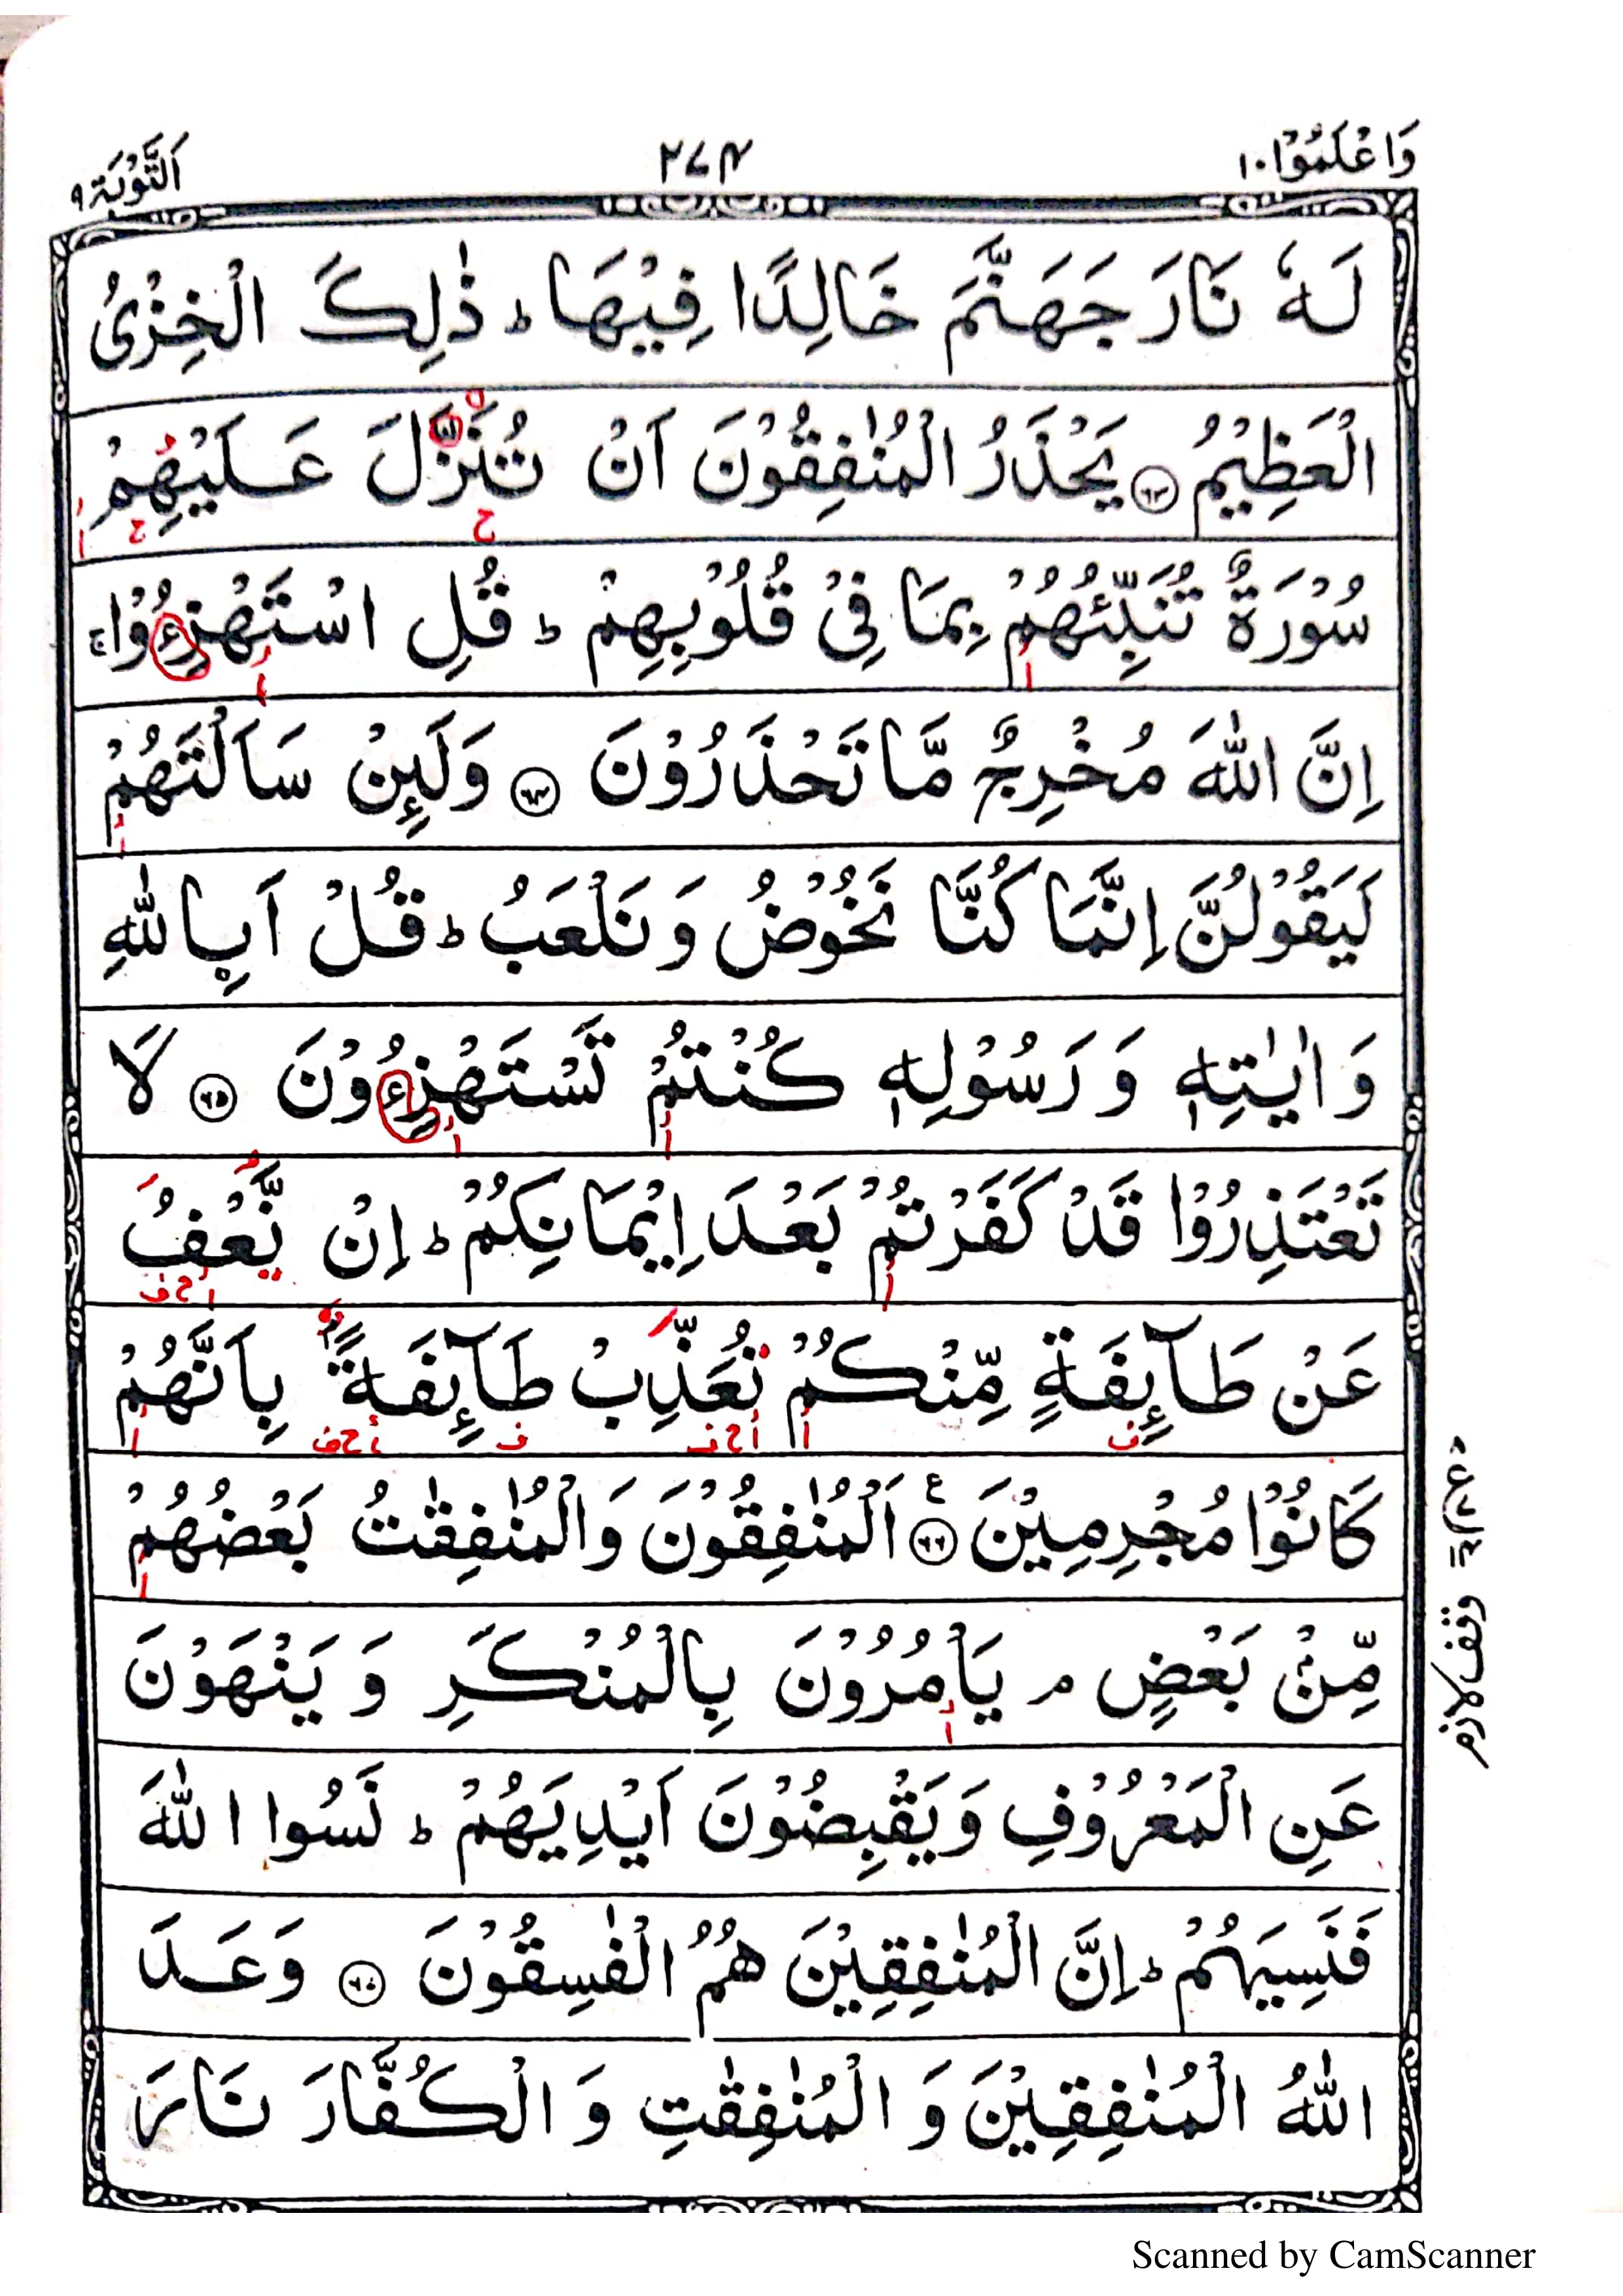 وَاعْلَمُوْٓا۱۰
۲۷۴
اَلتَّوْبَة۹
لَهٗ نَارَ جَهَنَّمَ خَالِدًا فِيْهَا ؕ ذٰلِكَ الْخِزْىُ
الْعَظِيْمُ ۶۳ يَحْذَرُ الْمُنٰفِقُوْنَ اَنْ تُنَزَّلَ عَلَيْهِمْ
سُوْرَةٌ تُنَبِّئُهُمْ بِمَا فِىْ قُلُوْبِهِمْ ؕ قُلِ اسْتَهْزِءُوْا ۚ
اِنَّ اللّٰهَ مُخْرِجٌ مَّا تَحْذَرُوْنَ ۶۴ وَلَٮِٕنْ سَاَلْتَهُمْ
لَيَقُوْلُنَّ اِنَّمَا كُنَّا نَخُوْضُ وَ نَلْعَبُ ؕ قُلْ اَبِاللّٰهِ
وَ اٰيٰتِهٖ وَ رَسُوْلِهٖ كُنْتُمْ تَسْتَهْزِءُوْنَ ۶۵ لَا
تَعْتَذِرُوْا قَدْ كَفَرْتُمْ بَعْدَ اِيْمَانِكُمْ ؕ اِنْ نَّعْفُ
عَنْ طَآٮِٕفَةٍ مِّنْكُمْ نُعَذِّبْ طَآٮِٕفَةًۢ بِاَنَّهُمْ
كَانُوْا مُجْرِمِيْنَ ۶۶ ع اَلْمُنٰفِقُوْنَ وَالْمُنٰفِقٰتُ بَعْضُهُمْ
مِّنْۢ بَعْضٍ ۘ يَاْمُرُوْنَ بِالْمُنْكَرِ وَ يَنْهَوْنَ
عَنِ الْمَعْرُوْفِ وَيَقْبِضُوْنَ اَيْدِيَهُمْ ؕ نَسُوا اللّٰهَ
فَنَسِيَهُمْ ؕ اِنَّ الْمُنٰفِقِيْنَ هُمُ الْفٰسِقُوْنَ ۶۷ وَعَدَ
اللّٰهُ الْمُنٰفِقِيْنَ وَ الْمُنٰفِقٰتِ وَ الْكُفَّارَ نَارَ
وقف لازم
Scanned by CamScanner